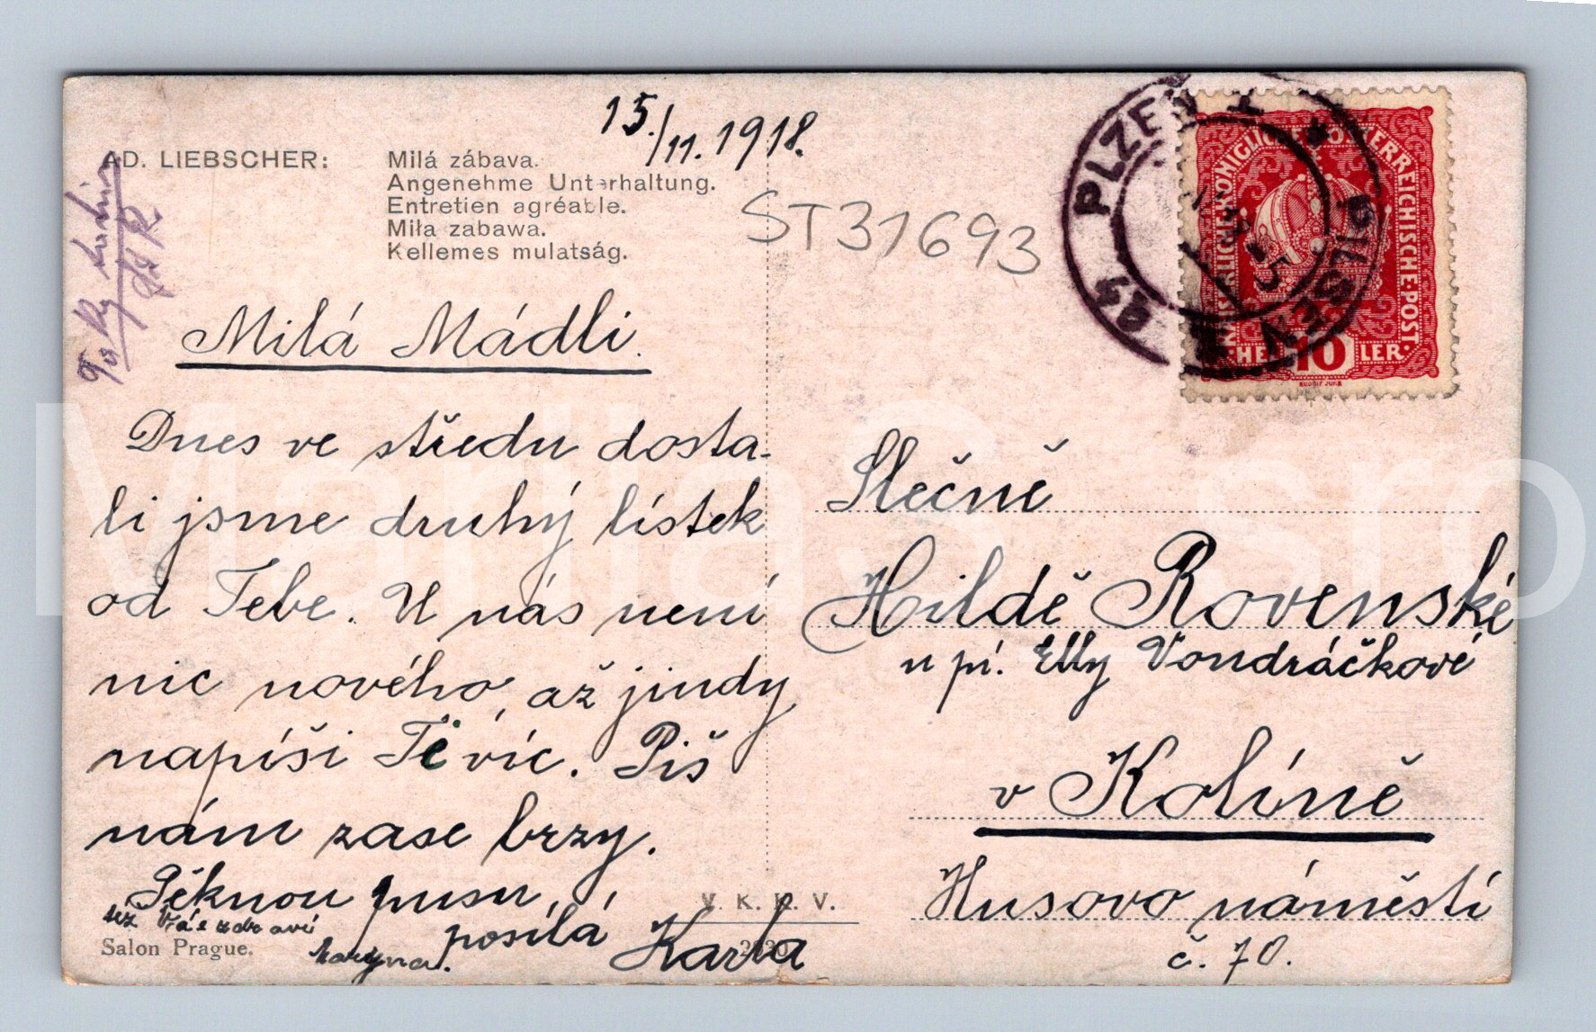 15./11. 1918.
AD. LIEBSCHER:
Milá zábava.
Angenehme Unterhaltung.
Entretien agréable.
Miła zabawa.
Kellemes mulatság.
ST31693
PLZEŇ 1
PILSEN
KAISERLICHE KÖNIGLICHE ÖSTERREICHISCHE POST.
HELLER
10
Milá Mádli.
Dnes ve středu dosta-
li jsme druhý lístek
od Tebe. U nás není
nic nového, až jindy
napíši Ti víc. Piš
nám zase brzy.
Pěknou pusu
posílá Karla
též Vás zdraví
Salon Prague.
V. K. K. V.
Slečně
Hildě Rovenské
u pí. Elly Vondráčkové
v Kolíně
Husovo náměstí
č. 70.